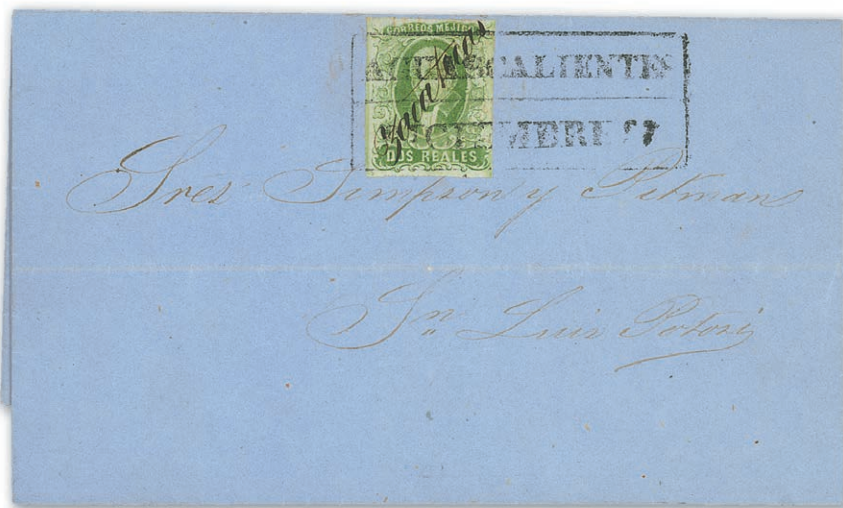 CORREOS MEJICO
Zacatecas
DOS REALES
AGUASCALIENTES
DICIEMBRE
Sres Simpson y Pitman
Sn Luis Potosi